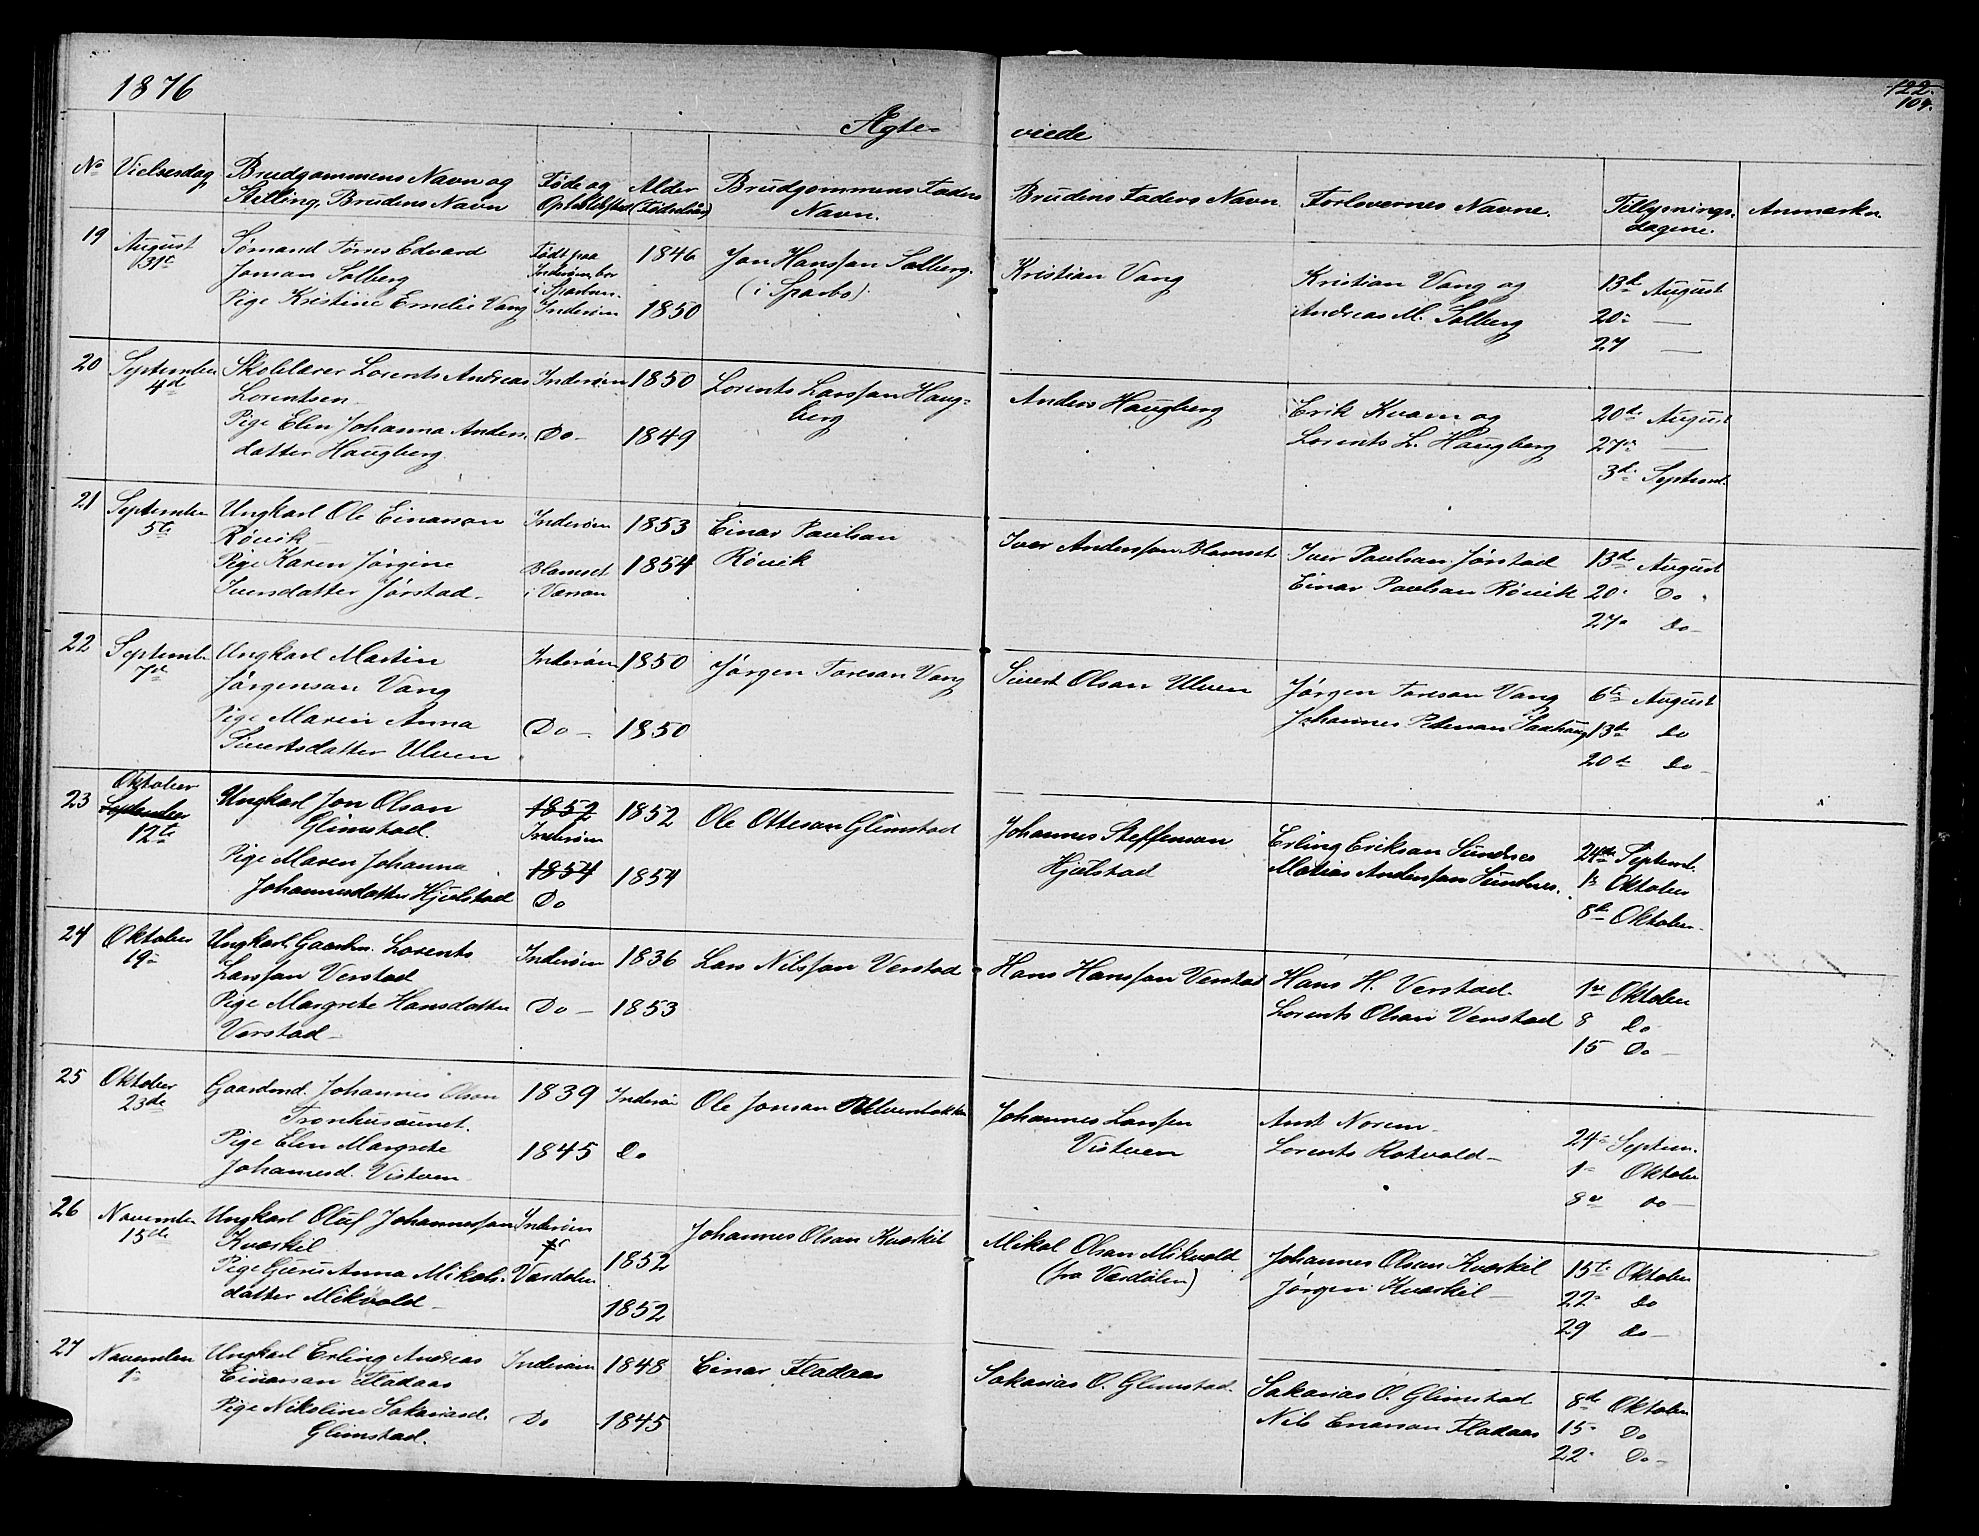 1876
122.
104.
Ægte-
viede
No
Vielsesdag
Brudgommens Navn og
Stilling, Brudens Navn
Føde og
Opholdssted
Alder
(Fødselsår)
Brudgommens Faders
Navn.
Brudens Faders Navn
Forlovernes Navne.
Tillysnings-
dagene.
Anmærkn.
19
August
31te
Sømand Tørres Edvard
Jonsan Salberg
Pige Kristine Emelie Vang
Født paa
Inderøen, bor
i Sparbun.
Inderøen
1846
1850
Jon Hanssan Salberg.
(i Sparbo).
Kristian Vang
Kristian Vang og
Andreas M. Salberg
13de August
20. —
27 —
20
September
4de
Skolelærer Lorents Andreas
Lorentsen
Pige Elen Johanna Anders
datter Haugberg.
Inderøen
Do
1850
1849
Lorents Larssan Haug-
berg
Anders Haugberg
Erik Kvam og
Lorents L. Haugberg
20de August
27. —
3de Septemb.
21
September
5te
Ungkarl Ole Einarsan
Røvik
Pige Karen Jørgine
Iversdatter Jørstad.
Inderøen
Blamset
i Værran
1853
1854
Einar Paulsan
Røvik
Iver Anderssan Blamset
Iver Paulsan Jørstad
Einar Paulsan Røvik
13de August
20. Do
27. Do
22
September
7de
Ungkarl Martin
Jørgensan Vang
Pige Maren Anna
Sivertsdatter Ulven
Inderøen
Do
1850
1850
Jørgen Toresan Vang
Sivert Olsan Ulven
Jørgen Toresan Vang
Johannes Petersan Saxhaug
6te August
13de Do
20de Do
23
Oktober
September
12te
Ungkarl Jon Olsan
Glimstad.
Pige Maren Johanna
Johannesdatter Hjelstad
1852
Inderøen
1854
Do
1852
1854
Ole Ottesan Glimstad
Johannes Steffensan
Hjelstad
Erling Eriksan Sundnes
Matias Anderssan Sundnes.
24de Septemb.
1ste Oktober
8de Oktober.
24
Oktober
19.
Ungkarl, Gaardm. Lorents
Larssan Verstad
Pige Margrete Hansdatter
Verstad
Inderøen
Do
1836
1853
Lars Nilssan Verstad
Hans Hanssan Verstad
Hans H. Verstad.
Lorents Olsan Verstad
1ste Oktober
8 Do
15 Do
25
Oktober
23de
Gaardmd. Johannes Olsan
Tronhusaunet.
Pige Elen Margrete
Johannesd. Vistven
1839
1845
Inderøn
Do
Ole Jonsan
Johannes Larssen
Vistven
Arnt Norem
Lorents Rotvold
24. Septem.
1. Oktober
8de Do
26
November
15de
Ungkarl Oluf Johannessan
Kværkil
Pige Gurui Anna Mikals-
datter Mikvold
Inderøen
Værdalen
1852
1852
Johannes Olsan Kværkil
Mikal Olsan Mikvold
(fra Værdalen)
Johannes Olsan Kværkil
Jørgen Kværkil
15te Oktober
22. Do
29 Do
27
November
1.
Ungkarl Erling Andreas
Einarsan Fladaas
Pige Nikoline Sakariasd.
Glimstad.
Inderøen
Do
1848
1845
Einar Fladaas
Sakarias O. Glimstad.
Sakarias O. Glimstad
Nils Enarsan Fladaas
8de Oktober
15. Do
22. Do